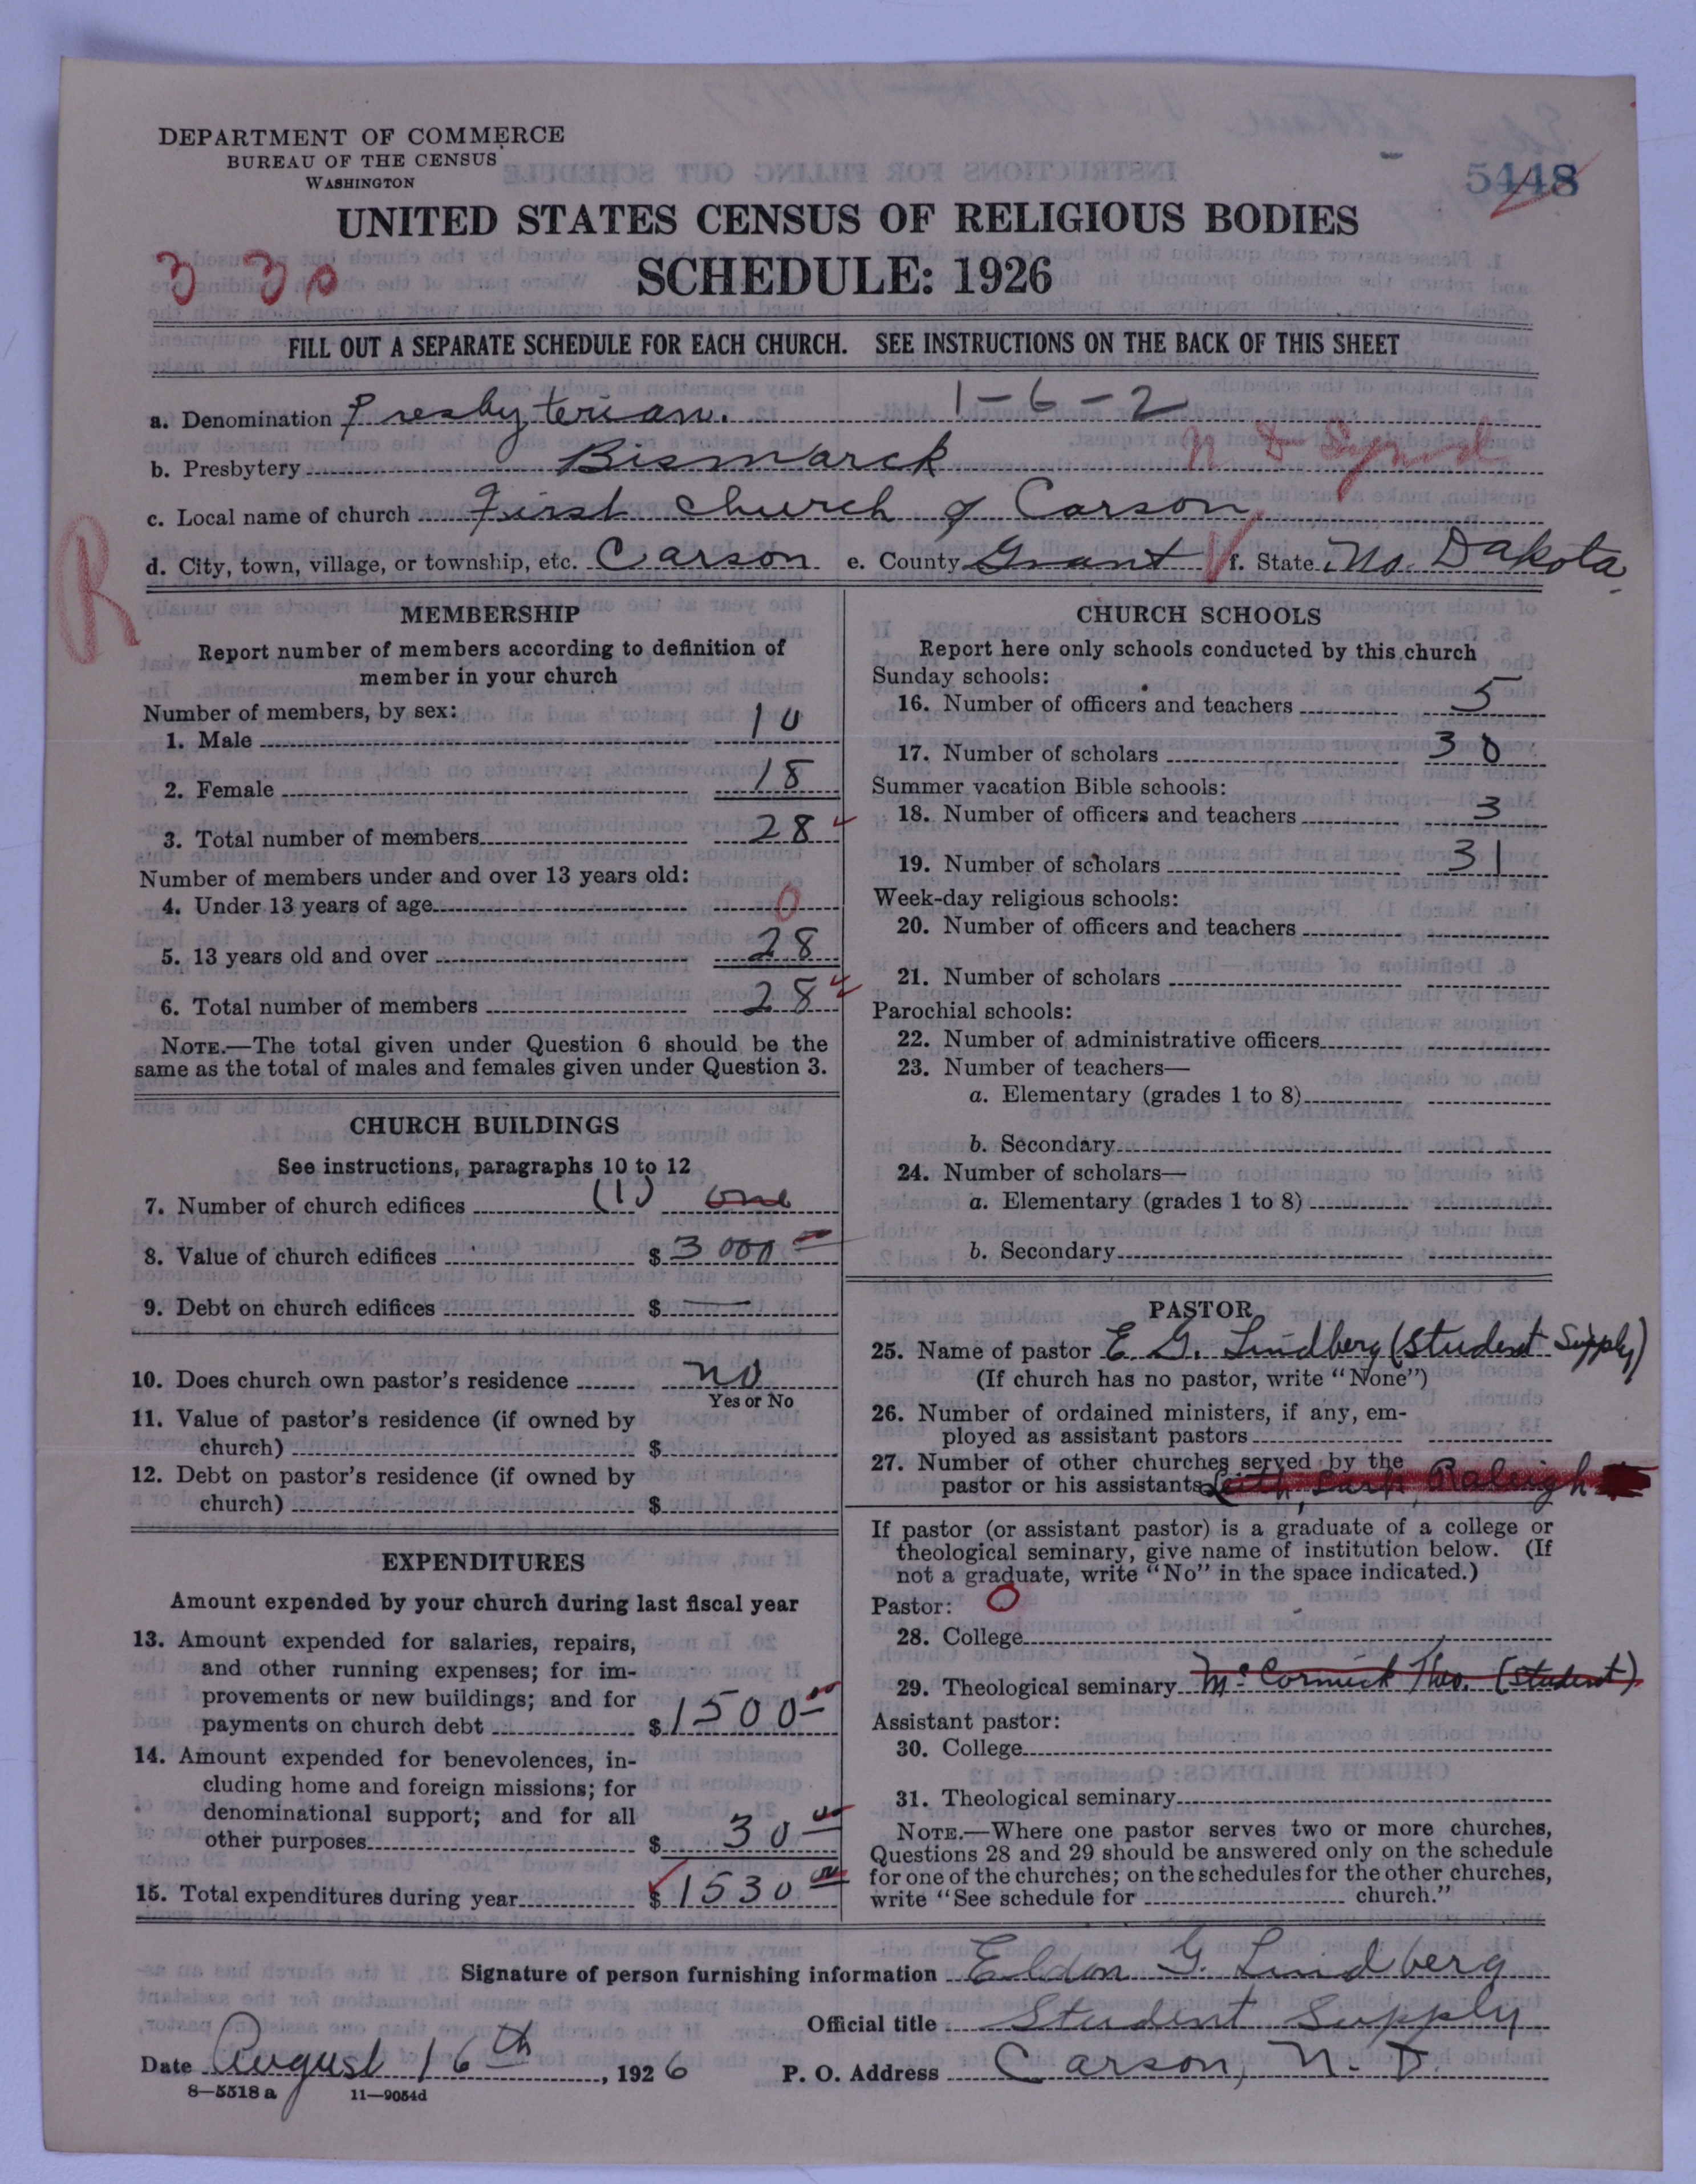 DEPARTMENT OF COMMERCE
BUREAU OF THE CENSUS
WASHINGTON
5448
UNITED STATES CENSUS OF RELIGIOUS BODIES
SCHEDULE: 1926
3 30
FILL OUT A SEPARATE SCHEDULE FOR EACH CHURCH. SEE INSTRUCTIONS ON THE BACK OF THIS SHEET
a. Denomination Presbyterian. 1-6-2
b. Presbytery Bismarck N D Synod
c. Local name of church First Church of Carson
R
d. City, town, village, or township, etc. Carson e. County Grant f. State No. Dakota.
MEMBERSHIP
Report number of members according to definition of
member in your church
Number of members, by sex:
1. Male 10
2. Female 18
3. Total number of members 28
Number of members under and over 13 years old:
4. Under 13 years of age 0
5. 13 years old and over 28
6. Total number of members 28
NOTE.—The total given under Question 6 should be the
same as the total of males and females given under Question 3.
CHURCH BUILDINGS
See instructions, paragraphs 10 to 12
7. Number of church edifices (1) one
8. Value of church edifices $ 3000 —
9. Debt on church edifices $ —
10. Does church own pastor's residence no
Yes or No
11. Value of pastor's residence (if owned by
church) $
12. Debt on pastor's residence (if owned by
church) $
EXPENDITURES
Amount expended by your church during last fiscal year
13. Amount expended for salaries, repairs,
and other running expenses; for im-
provements or new buildings; and for
payments on church debt $ 1500 00
14. Amount expended for benevolences, in-
cluding home and foreign missions; for
denominational support; and for all
other purposes $ 30 00
15. Total expenditures during year $ 1530 00
CHURCH SCHOOLS
Report here only schools conducted by this church
Sunday schools:
16. Number of officers and teachers 5
17. Number of scholars 30
Summer vacation Bible schools:
18. Number of officers and teachers 3
19. Number of scholars 31
Week-day religious schools:
20. Number of officers and teachers
21. Number of scholars
Parochial schools:
22. Number of administrative officers
23. Number of teachers—
a. Elementary (grades 1 to 8)
b. Secondary
24. Number of scholars—
a. Elementary (grades 1 to 8)
b. Secondary
PASTOR
25. Name of pastor E. G. Lindberg (Student Supply)
(If church has no pastor, write "None")
26. Number of ordained ministers, if any, em-
ployed as assistant pastors
27. Number of other churches served by the
pastor or his assistants Leith, Lark, Raleigh
If pastor (or assistant pastor) is a graduate of a college or
theological seminary, give name of institution below. (If
not a graduate, write "No" in the space indicated.)
Pastor: O
28. College
29. Theological seminary McCormick Theo. (Student)
Assistant pastor:
30. College
31. Theological seminary
NOTE.—Where one pastor serves two or more churches,
Questions 28 and 29 should be answered only on the schedule
for one of the churches; on the schedules for the other churches,
write "See schedule for church."
Signature of person furnishing information Eldon G. Lindberg
Official title Student Supply
Date August 16th, 1926 P. O. Address Carson, N. D.
8—5518 a 11—9054d